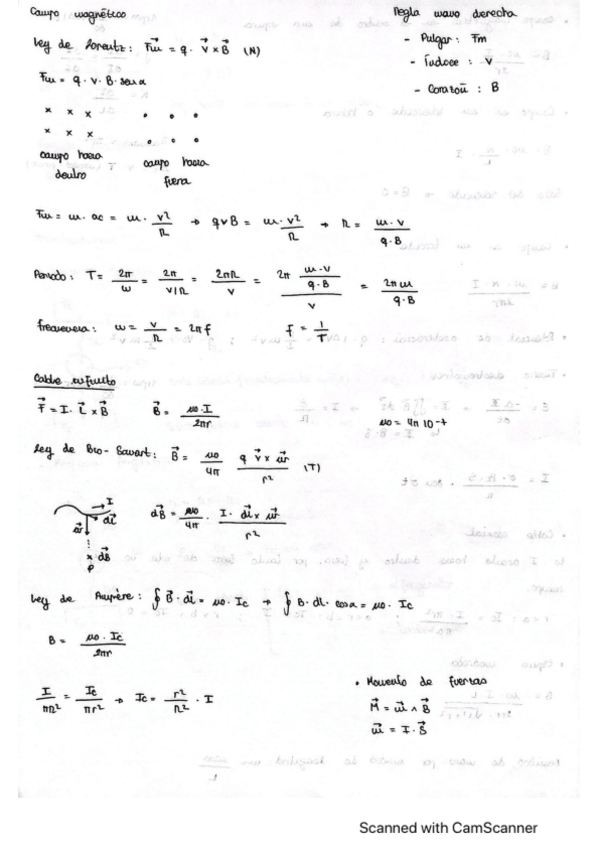 Campo magnético
Regla mano derecha
- Pulgar: Fm
- Índice: V
- Corazón: B
Ley de Lorentz: F⃗m = q · v⃗ x B⃗ (N)
Fm = q · v · B · sen α
x x x
x x x
campo hacia dentro
• • •
• • •
campo hacia fuera
Fm = m · ac = m · v²/R → qvB = m · v²/R → R = m · v / q · B
Periodo: T = 2π/ω = 2π/(v/R) = 2πR/v = 2π (m · v / q · B) / v = 2πm / q · B
frecuencia: ω = v/R = 2πf f = 1/T
Cable infinito
F⃗ = I · L⃗ x B⃗ B⃗ = μo · I / 2πr μo = 4π 10⁻⁷
Ley de Bio-Savart: B⃗ = μo/4π q v⃗ x u⃗r / r² (T)
I
dl⃗
u⃗r
dB⃗
P
dB⃗ = μo/4π · I · dl⃗ x u⃗r / r²
Ley de Ampère: ∮ B⃗ · dl⃗ = μo · Ic → ∮ B · dl · cos α = μo · Ic
B = μo · Ic / 2πr
I/πR² = Ic/πr² → Ic = r²/R² · I
• Momento de fuerzas
M⃗ = m⃗ ∧ B⃗
m⃗ = I · S⃗
Scanned with CamScanner